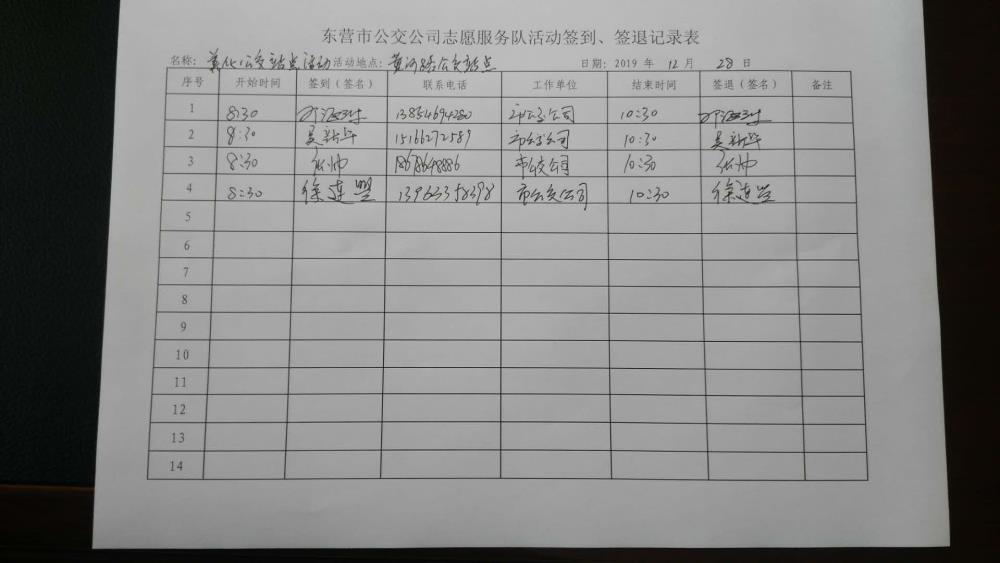 东营市公交公司志愿服务队活动签到、签退记录表
名称: 美化公交站点活动 活动地点: 黄河路公交站点 日期: 2019 年 12 月 28 日
序号 开始时间 签到(签名) 联系电话 工作单位 结束时间 签退(签名) 备注
1 8:30 13854694280 市公交公司 10:30
2 8:30 吴新华 15166272589 市公交公司 10:30 吴新华
3 8:30 张帅 18678648886 市公交公司 10:30 张帅
4 8:30 徐连盟 13963358398 市公交公司 10:30 徐连盟
5
6
7
8
9
10
11
12
13
14